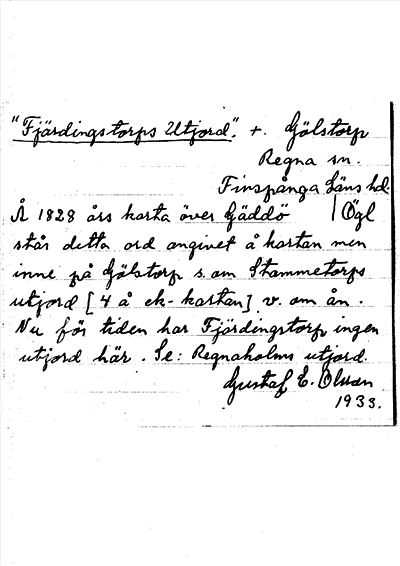 "Fjärdingstorps Utjord". +. Gölstorp
Regna sn.
Finspånga läns hd.
Å 1828 års karta över Gäddö | Ögl
står detta ord angivet å kartan men
inne på Gölstorp s.om Stammetorps
utjord [4 å ek-kartan] v. om ån.
Nu för tiden har Fjärdingstorp ingen
utjord här. Se: Regnaholms utjord.
Gustaf E. Olsson
1933.